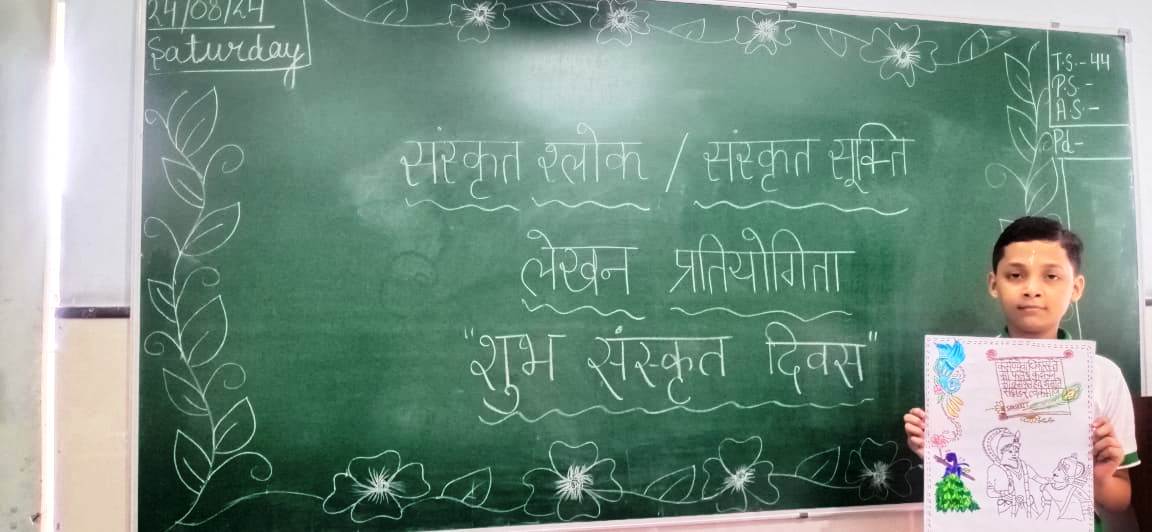 24/08/24
Saturday
T.S.-44
P.S.-
A.S.-
Pd-
संस्कृत श्लोक / संस्कृत सूक्ति
लेखन प्रतियोगिता
"शुभ संस्कृत दिवस"